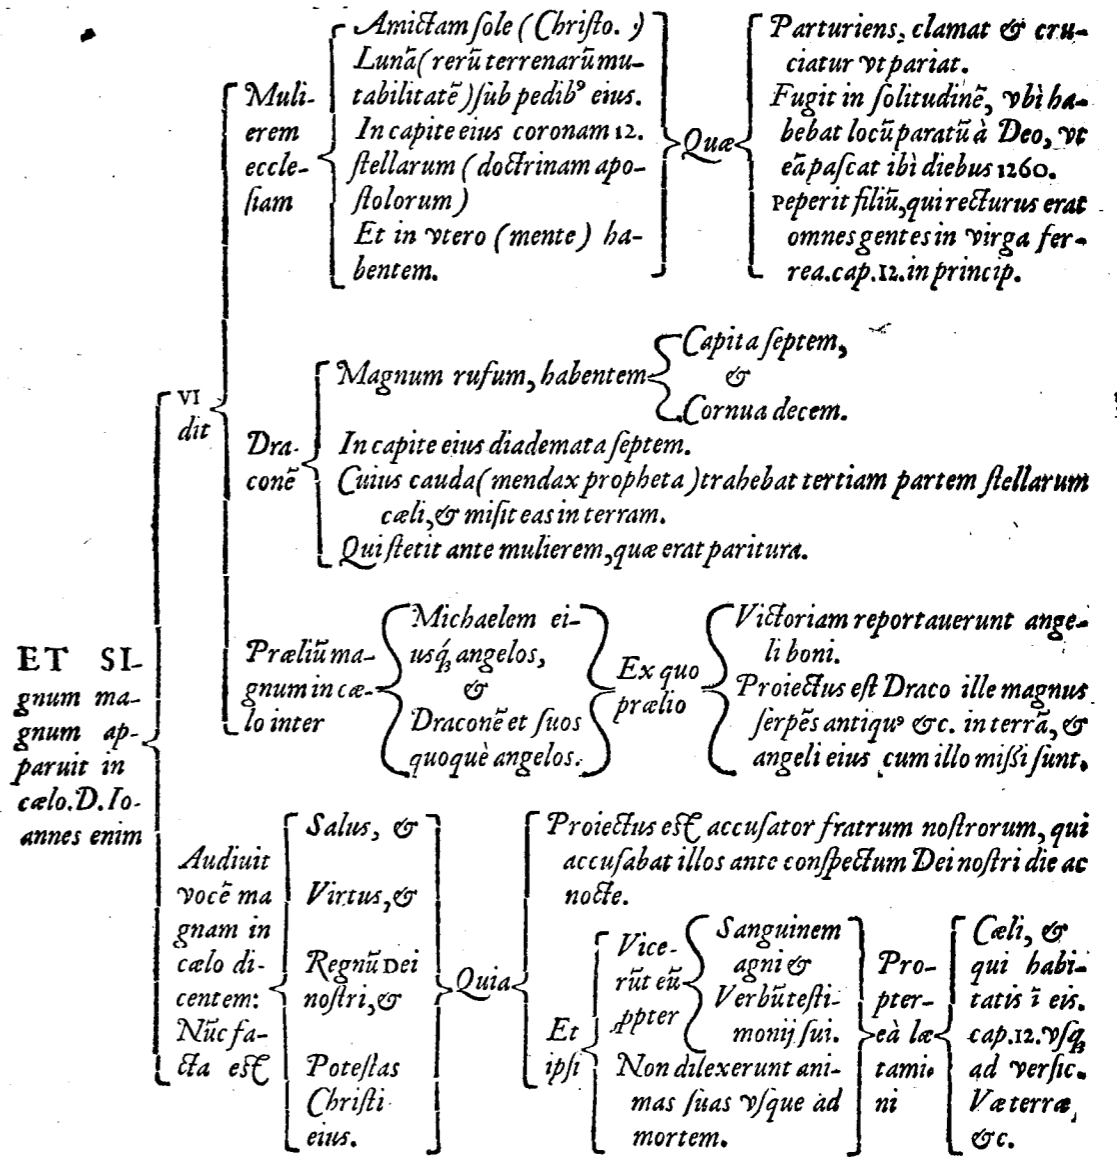 ET SI-
gnum ma-
gnum ap-
paruit in
cælo. D. Io-
annes enim
VI
dit
Muli-
erem
eccle-
ſiam
Amictam ſole (Chriſto.)
Lunā (rerū terrenarū mu-
tabilitatē) ſub pedibꝰ eius.
In capite eius coronam 12.
ſtellarum (doctrinam apo-
ſtolorum)
Et in vtero (mente) ha-
bentem.
Quæ
Parturiens, clamat & cru-
ciatur vt pariat.
Fugit in ſolitudinē, vbì ha-
bebat locū paratū à Deo, vt
eā paſcat ibì diebus 1260.
Peperit filiū, qui recturus erat
omnes gentes in virga fer-
rea. cap. 12. in princip.
Dra-
conē
Magnum rufum, habentem
Capita ſeptem,
&
Cornua decem.
In capite eius diademata ſeptem.
Cuius cauda (mendax propheta) trahebat tertiam partem ſtellarum
cæli, & miſit eas in terram.
Qui ſtetit ante mulierem, quæ erat paritura.
Præliū ma-
gnum in cæ-
lo inter
Michaelem ei-
usq́ꝫ angelos,
&
Draconē et ſuos
quoquè angelos.
Ex quo
prælio
Victoriam reportauerunt ange-
li boni.
Proiectus eſt Draco ille magnus
ſerpēs antiquꝰ &c. in terrā, &
angeli eius cum illo miſſi ſunt.
Audiuit
vocē ma
gnam in
cælo di-
centem:
Nūc fa-
cta eſt
Salus, &
Virtus, &
Regnū Dei
noſtri, &
Poteſtas
Chriſti
eius.
Quia
Proiectus eſt accuſator fratrum noſtrorum, qui
accuſabat illos ante conſpectum Dei noſtri die ac
nocte.
Et
ipſi
Vice-
rūt eū
ꝓpter
Sanguinem
agni &
Verbū teſti-
monij ſui.
Non dilexerunt ani-
mas ſuas vſque ad
mortem.
Pro-
pter-
eà læ-
tami-
ni
Cæli, &
qui habi-
tatis ī eis.
cap. 12. vſqꝫ
ad verſic.
Væ terræ,
&c.